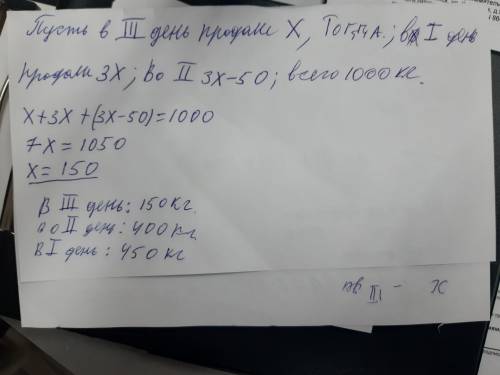 Пусть в III день продали X, Тогда; в I день
продали 3X; Во II 3X-50; всего 1000 кг.
X+3X+(3X-50)=1000
7X=1050
X=150
В III день: 150 кг.
во II день: 400 кг
в I день: 450 кг
III - X